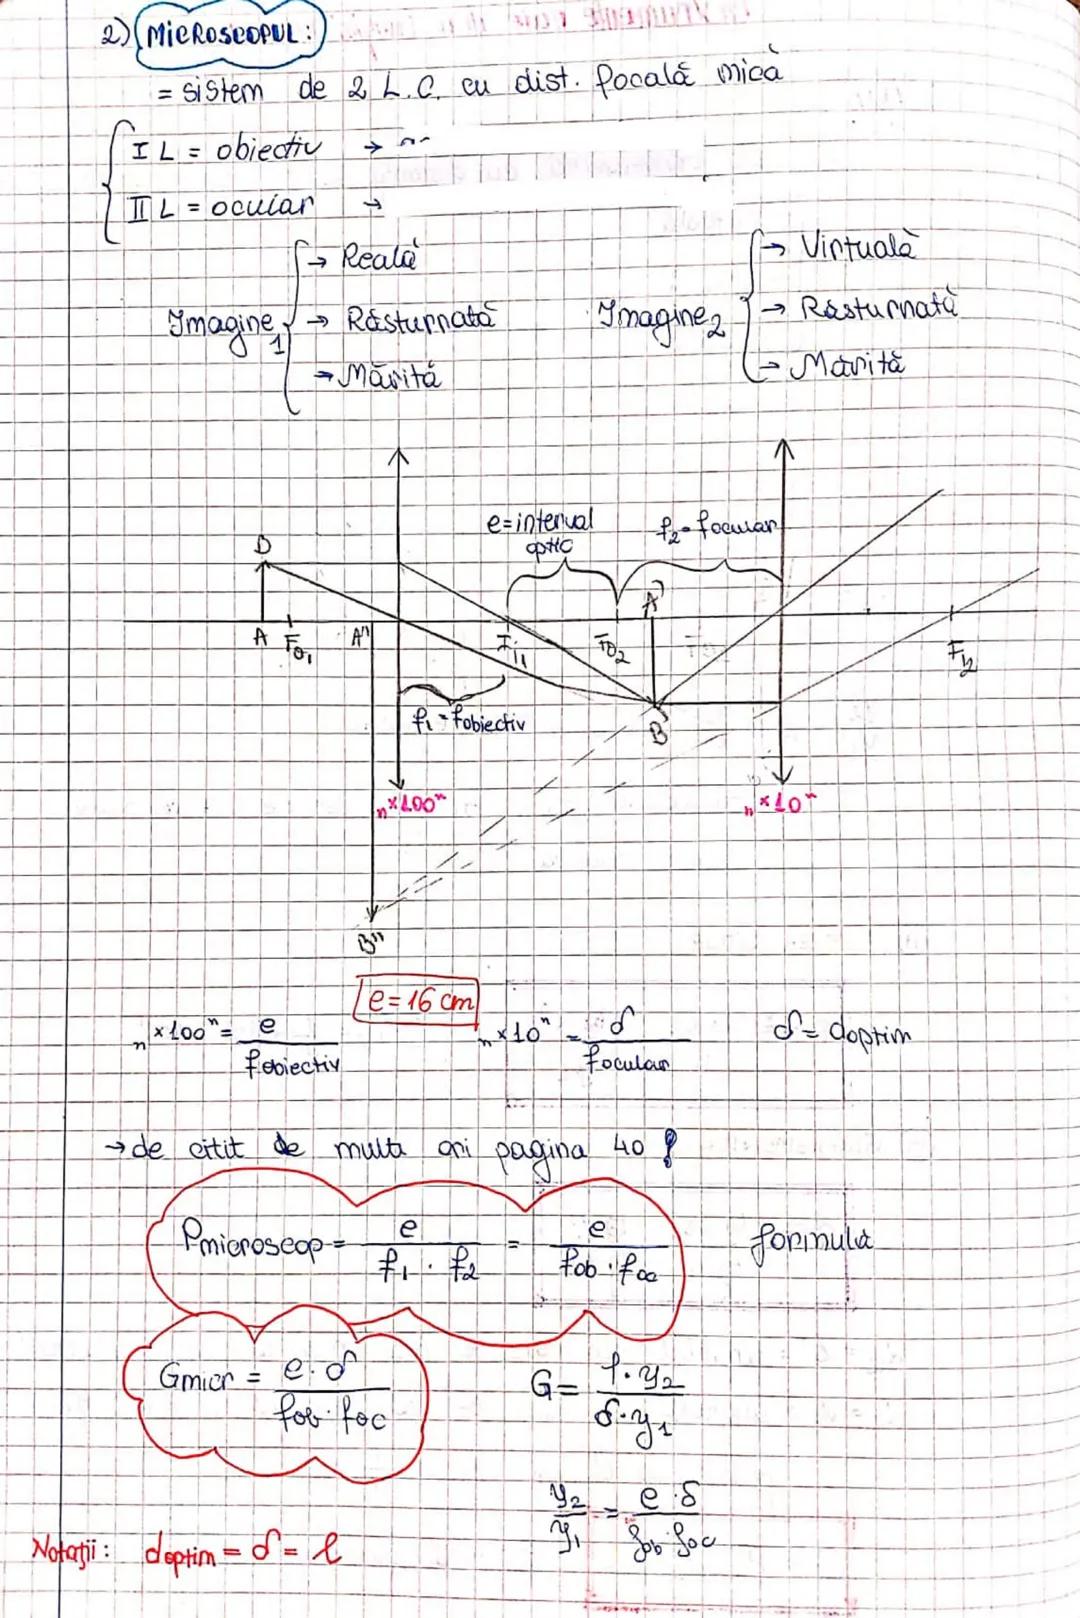 2) MICROSCOPUL:
= sistem de 2 L.C. cu dist. focală mică
I L = obiectiv →
II L = ocular →
Imagine 1 → Reală
→ Răsturnată
→ Mărită
Imagine 2 → Virtuală
→ Răsturnată
→ Mărită
e = interval optic
f2 = focular
B
A'
A
Fo1
A"
Fi1
Fo2
Fi2
f1 = fobiectiv
B'
"×100"
"×10"
B"
e = 16 cm
"×100" = e / fobiectiv
"×10" = δ / focular
δ = doptim
→ de citit de multe ori pagina 40 !
Pmicroscop = e / f1 · f2 = e / fob · foc
formulă
Gmicr = e · δ / fob · foc
G = 1 · y2 / δ · y1
y2 / y1 = e · δ / fob · foc
Notații: doptim = δ = l